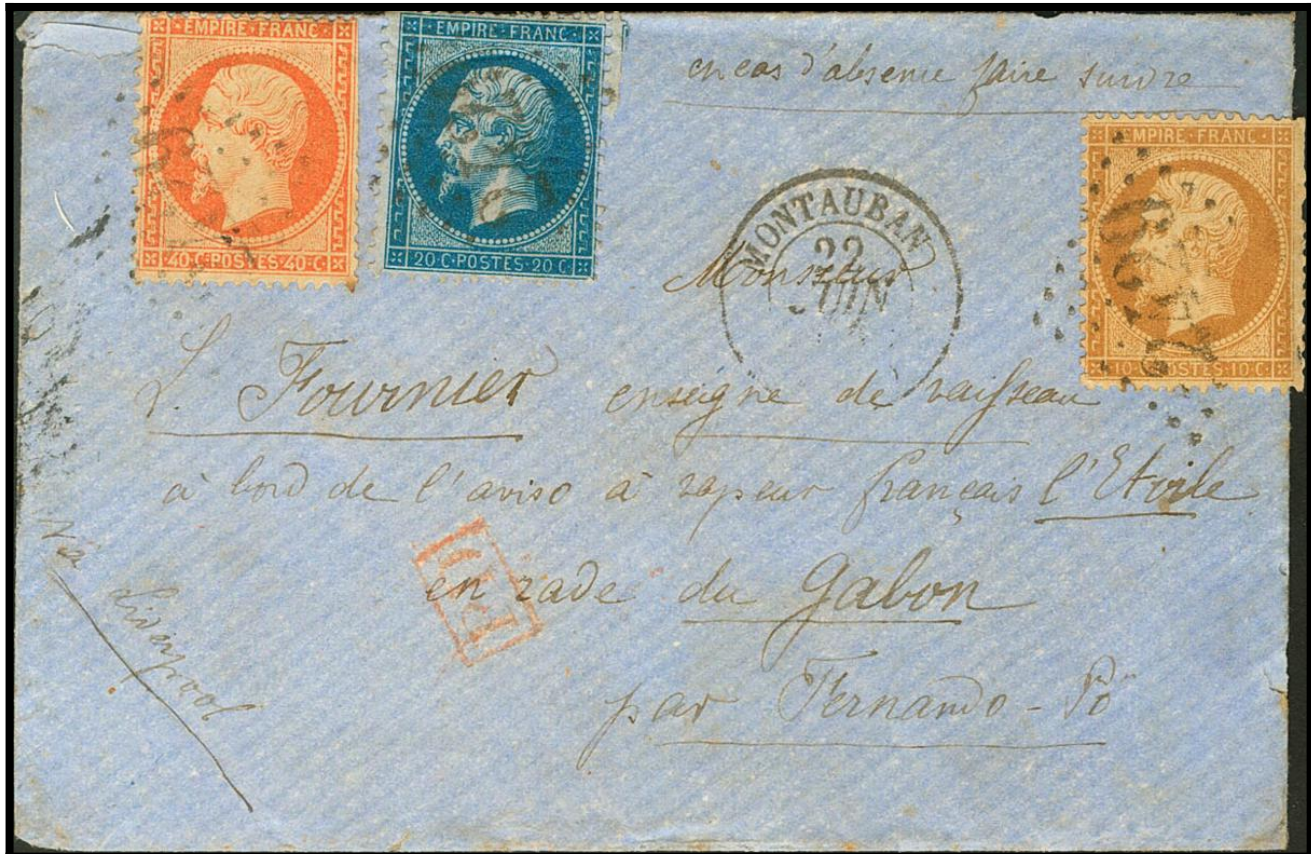 EMPIRE · FRANC ·
40 · C · POSTES · 40 · C
EMPIRE · FRANC ·
20 · C · POSTES · 20 · C
en cas d'absence faire suivre
EMPIRE · FRANC ·
10 · C · POSTES · 10 · C
MONTAUBAN
22
JUIN
Monsieur
L. Fournier enseigne de vaisseau
à bord de l'aviso à vapeur français l'Etoile
en rade du Gabon
par Fernando-Pô
Via Liverpool
P.D.